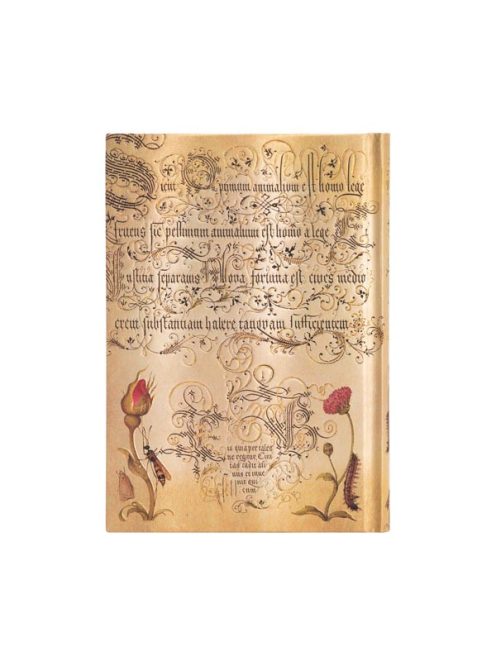 Sicut Optimum animalium est homo lege
fruens sic pessimum animalium est homo a lege
Iustitia separatus Bona fortuna est cives medio
crem substantiam habere tanquam sufficientem
is quia per tales
ne regitur Civi